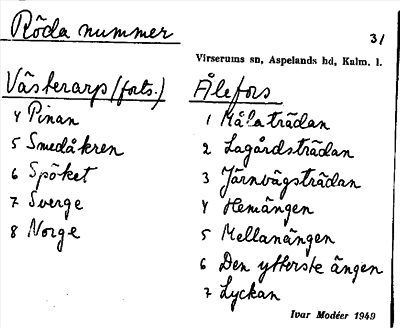 Röda nummer
31
Virserums sn, Aspelands hd, Kalm. l.
Västerarp (forts.)
4 Pinan
5 Smedåkren
6 Spöket
7 Sverge
8 Norge
Ålefors
1 Målaträdan
2 Lagårdsträdan
3 Järnvägsträdan
4 Hemängen
5 Mellanängen
6 Den ytterste ängen
7 Lyckan
Ivar Modéer 1949